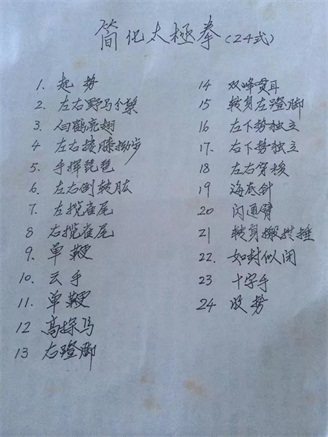 简化太極拳(24式)
1. 起势
2. 左右野马分鬃
3. 白鹤亮翅
4. 左右搂膝拗步
5. 手挥琵琶
6. 左右倒转肱
7. 左揽雀尾
8 右揽雀尾
9. 单鞭
10. 云手
11. 单鞭
12 高探马
13 右蹬脚
14 双峰贯耳
15 转身左蹬脚
16 左下势独立
17. 右下势独立
18 左右穿梭
19 海底针
20 闪通臂
21 转身搬拦捶
22. 如封似闭
23 十字手
24 收势